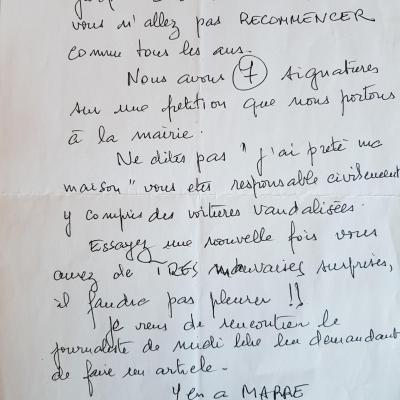 vous n'allez pas RECOMMENCER
comme tous les ans.
Nous avons 7 signatures
sur une petition que nous portons
à la mairie.
Ne dites pas "j'ai preté ma
maison" vous etes responsable civilement
y compris des voitures vandalisées.
Essayez une nouvelle fois vous
aurez de TRES mauvaises surprises,
il faudra pas pleurer !!
Je viens de rencontrer le
journaliste de midi libre lui demandant
de faire un article.
Y en a MARRE